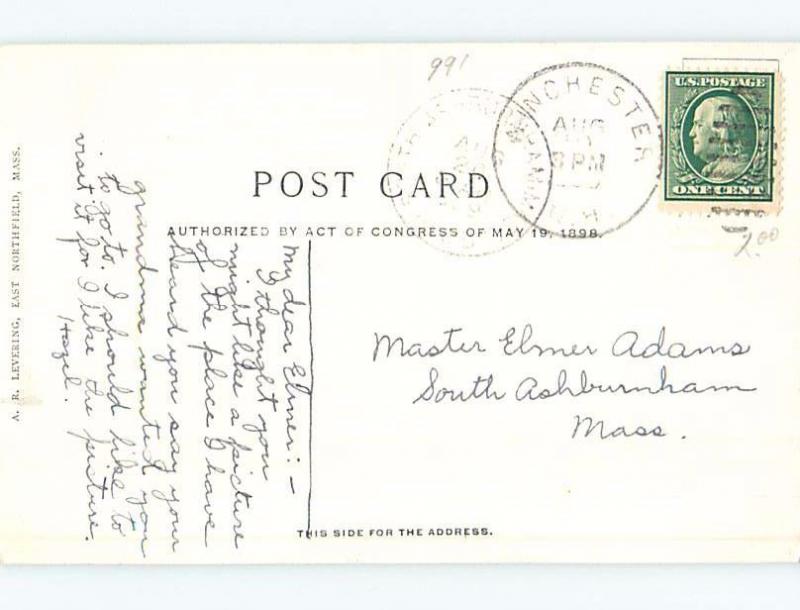 991
WINCHESTER
AUG
8 PM
N.H.
U.S. POSTAGE
ONE CENT
2.00
POST CARD
AUTHORIZED BY ACT OF CONGRESS OF MAY 19, 1898.
Master Elmer Adams
South Ashburnham
Mass.
My dear Elmer:-
I thought you
might like a picture
of the place I have
heard you say your
grandma wanted you
to go to. I should like to
visit it for I like the picture.
Hazel.
A. R. LEVERING, EAST NORTHFIELD, MASS.
THIS SIDE FOR THE ADDRESS.